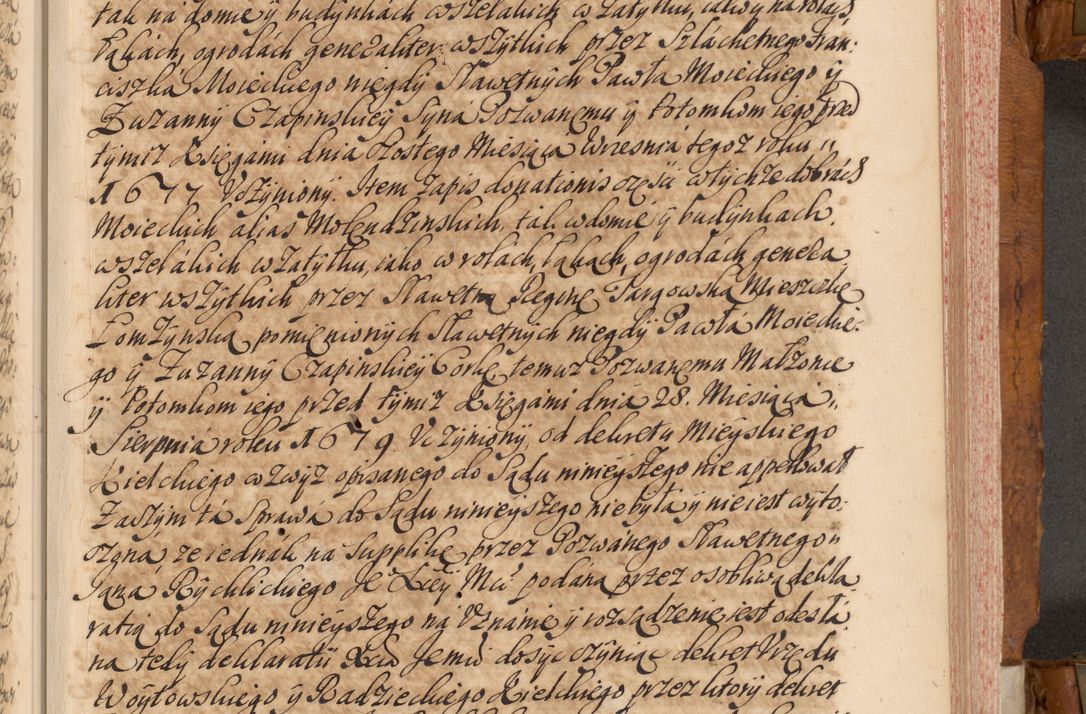 tak na domie ÿ budÿnkách wszelakich w Zatÿłku, iako ÿ na rolách,
łąkách, ogrodách generaliter wszÿtkich przez Szláchetnego Fran:
ciszka Moieckiego niegdÿ Sławetnÿch Pawła Moieckiego ÿ
Zuzannÿ Czapinskieÿ Sÿná Pozwanemu ÿ Potomkom iego przed
tÿmiż Xsięgámi dnia szostego Miesiąca Wrzesniá tegoż roku
1677 Vczÿnionÿ. Item zapis donationis częsci w tÿchże dobrách
Moieckich alias Molendzinskich, tak w domie ÿ budÿnkach
wszelákich w Zatÿłku, iako w rolach, łąkach, ogrodách genera
liter wszÿtkich przez Sławetną Reginę Targowską Mieszczkę
Łomzÿnską pomienionÿch Sławetnÿch niegdÿ Pawłá Moieckie:
go ÿ Zuzannÿ Czapinskieÿ Corkę temuż Pozwanemu Małzonce
ÿ Potomkom iego przed tÿmiż Xsięgámi dniá 28. Miesiącá
Sierpniá roku 1679. Vczÿnionÿ, od dekretu Mieÿskiego
Kielckiego wzwÿż opisanego do Sądu ninieÿszego nie appellował
Zaczÿm tá Sprawá do Sądu ninieÿszego nie bÿła ÿ nie iest wÿto:
czoná, że iednák na Supplikę przez Pozwánego Sławetnego
Jana Rÿchlickiego Je Xcey Mci podaną przez osobliwą dekla
ratią do Sądu ninieÿszego ná Vznánie ÿ rozsądzenie iest odesłá
na teÿ deklaratiÿ Xcia Jemci dosÿc czÿniąc dekret Vrzędu
Woÿtowskiego ÿ Radzieckiego Kielckiego przez ktorÿ dekret